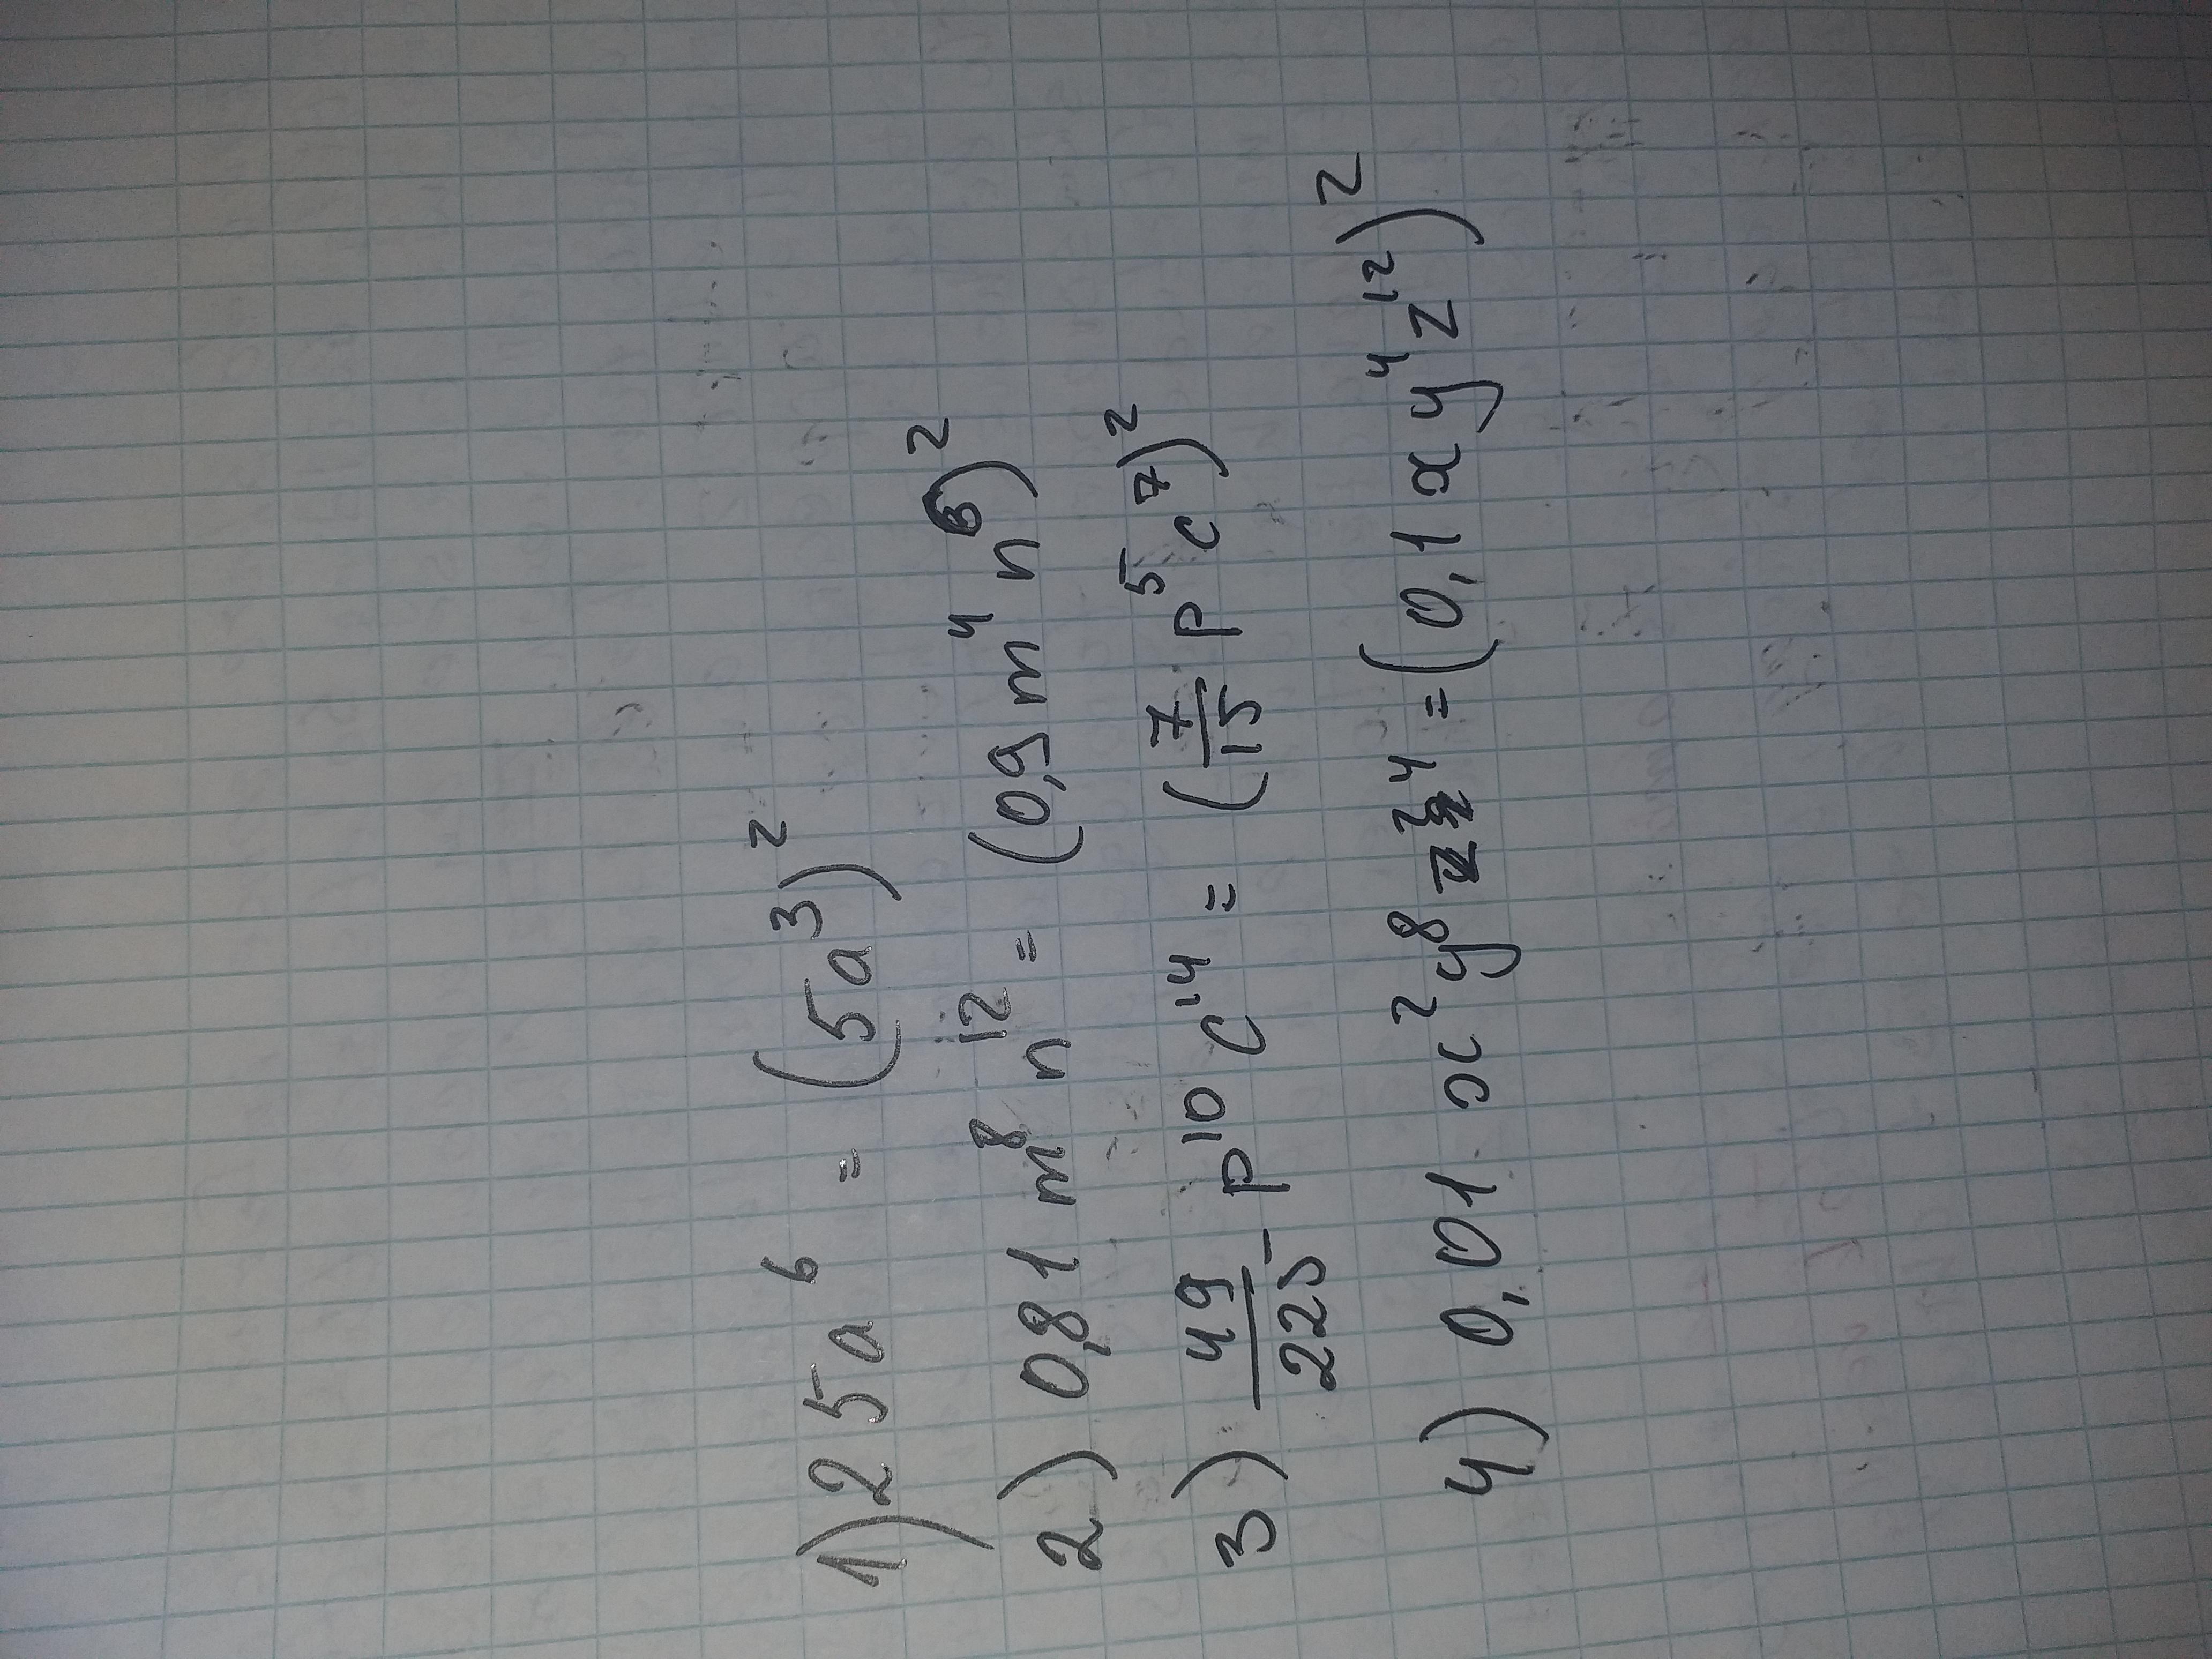 1) 25a⁶ = (5a³)²
2) 0,81 m⁸ n¹² = (0,9 m⁴ n⁶)²
3) 49/225 p¹⁰ c¹⁴ = (7/15 p⁵ c⁷)²
4) 0,01 x² y⁸ z²⁴ = (0,1 x y⁴ z¹²)²